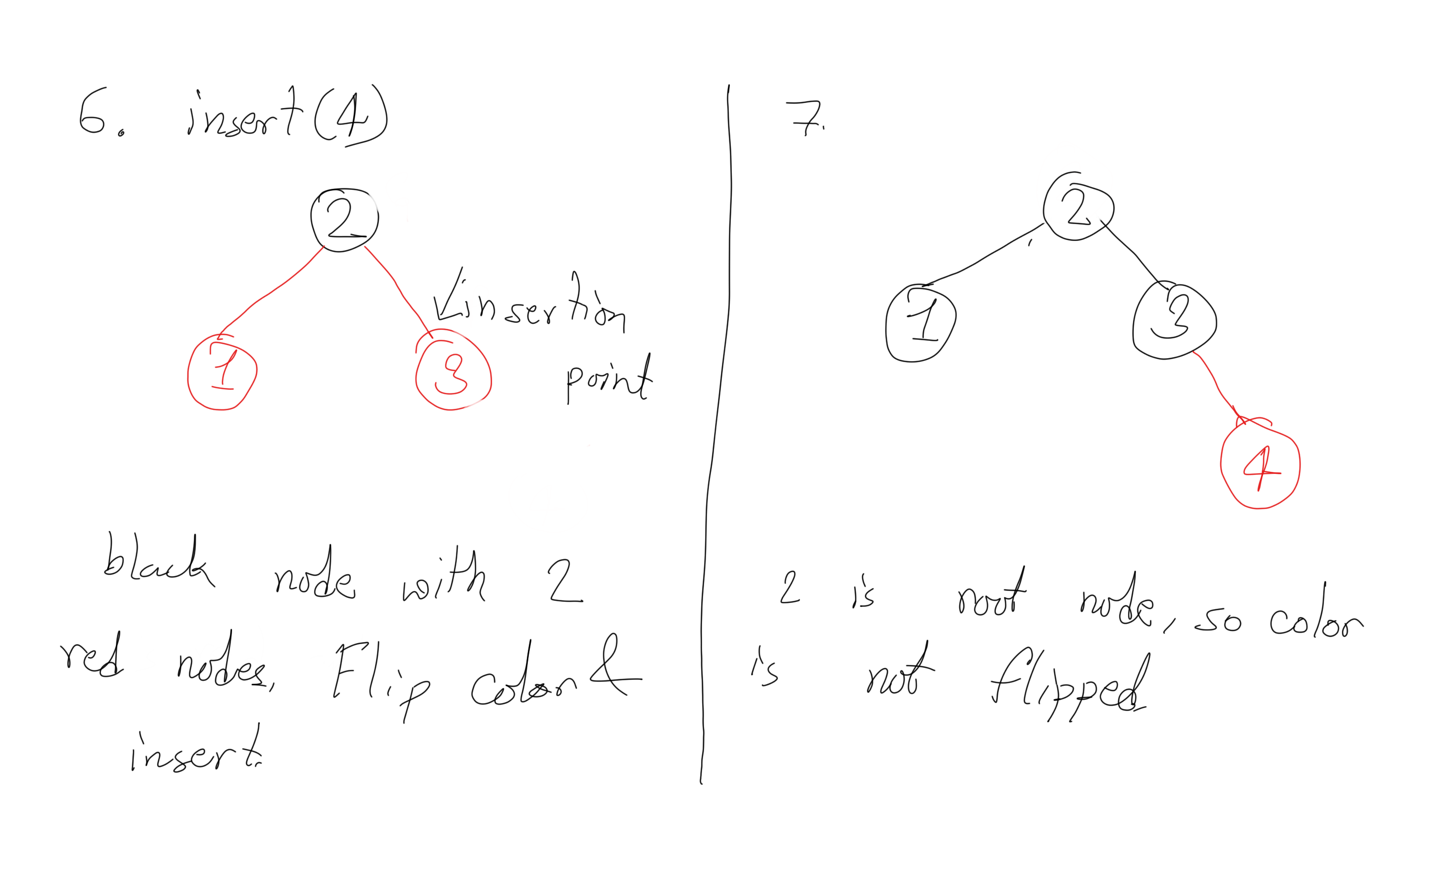 6. insert(4)
2
insertion
point
1
3
black node with 2
red nodes. Flip color &
insert.
7.
2
1
3
4
2 is root node, so color
is not flipped